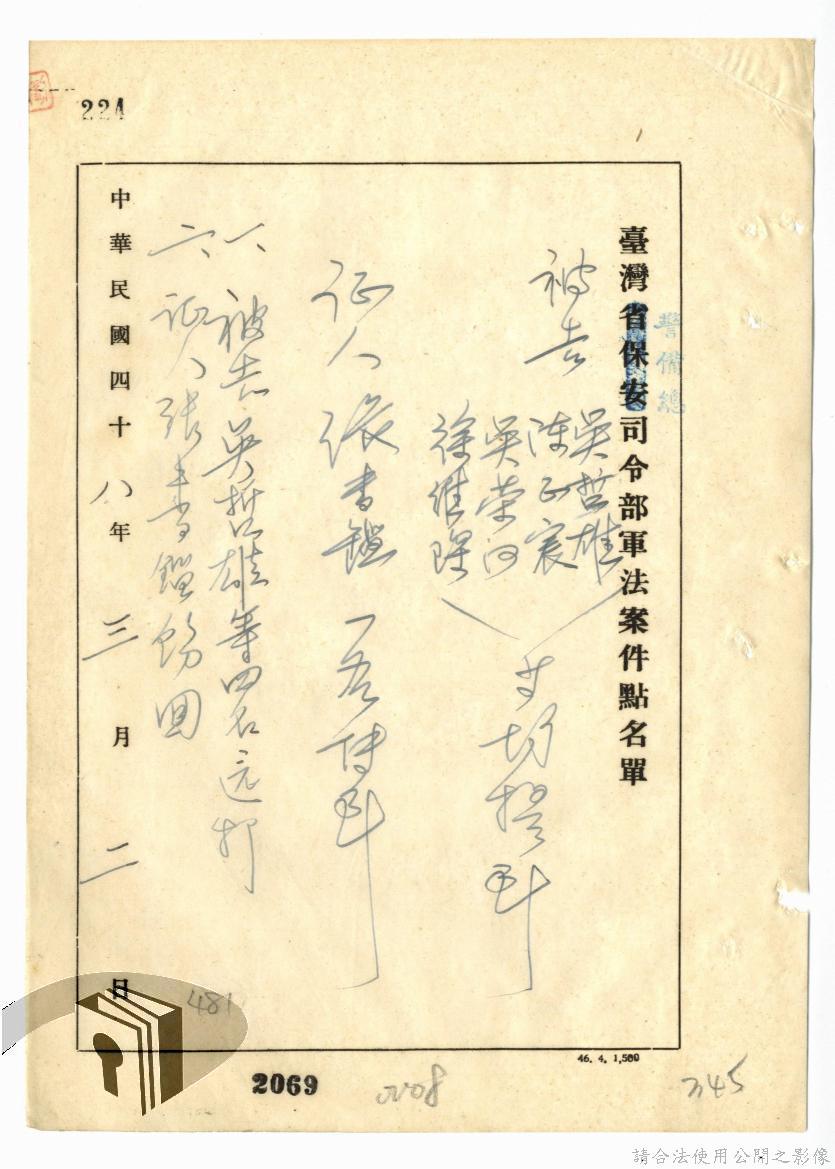 224
臺灣省保安司令部軍法案件點名單
警備總
被告
吳哲雄
陳正宸
吳榮河
徐維琛
在場提到
证人 張書鑑 一名傳到
一、被告吳哲雄等四名还押
一、证人張書鑑飭回
中華民國四十八年三月二日
481
46. 4. 1,500
2069
2208
245
請合法使用公開之影像